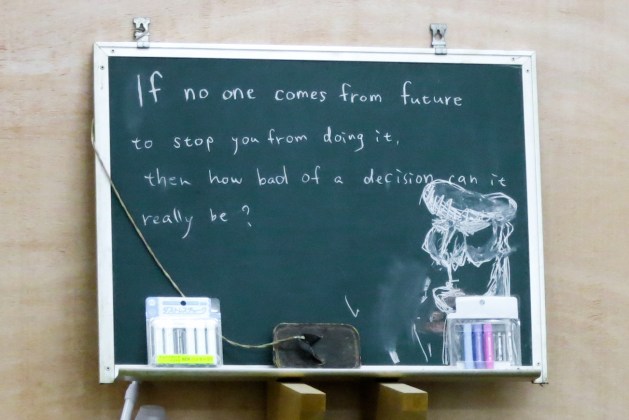 If no one comes from future
to stop you from doing it,
then how bad of a decision can it
really be?